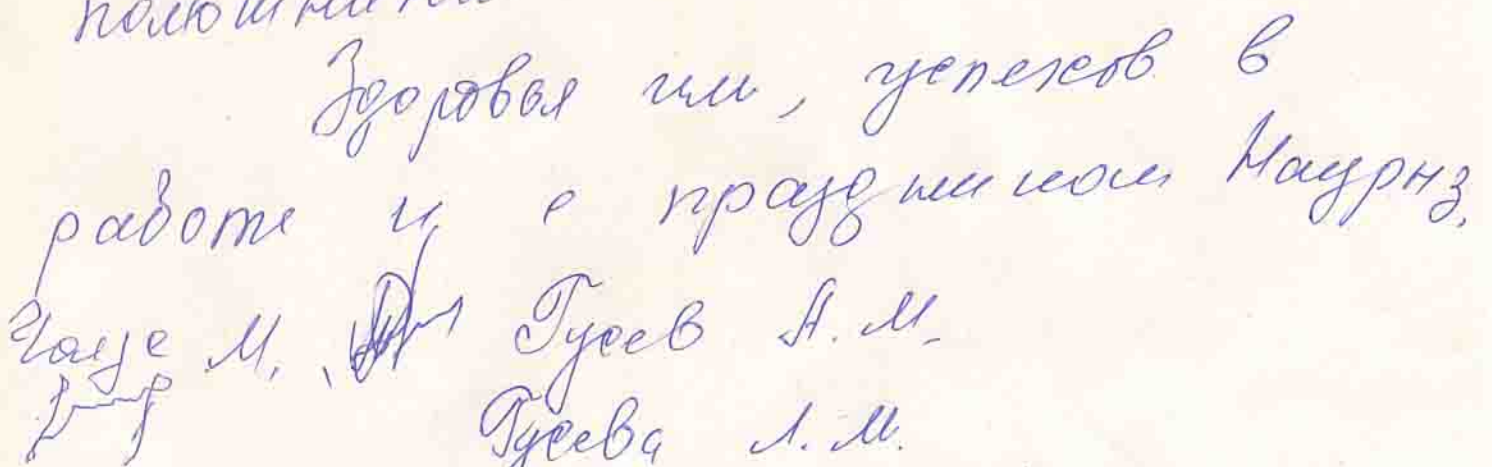 Здоровья им, успехов в
работе и с праздником Наурыз.
М. Гусев А. М.
Гусева Л. М.